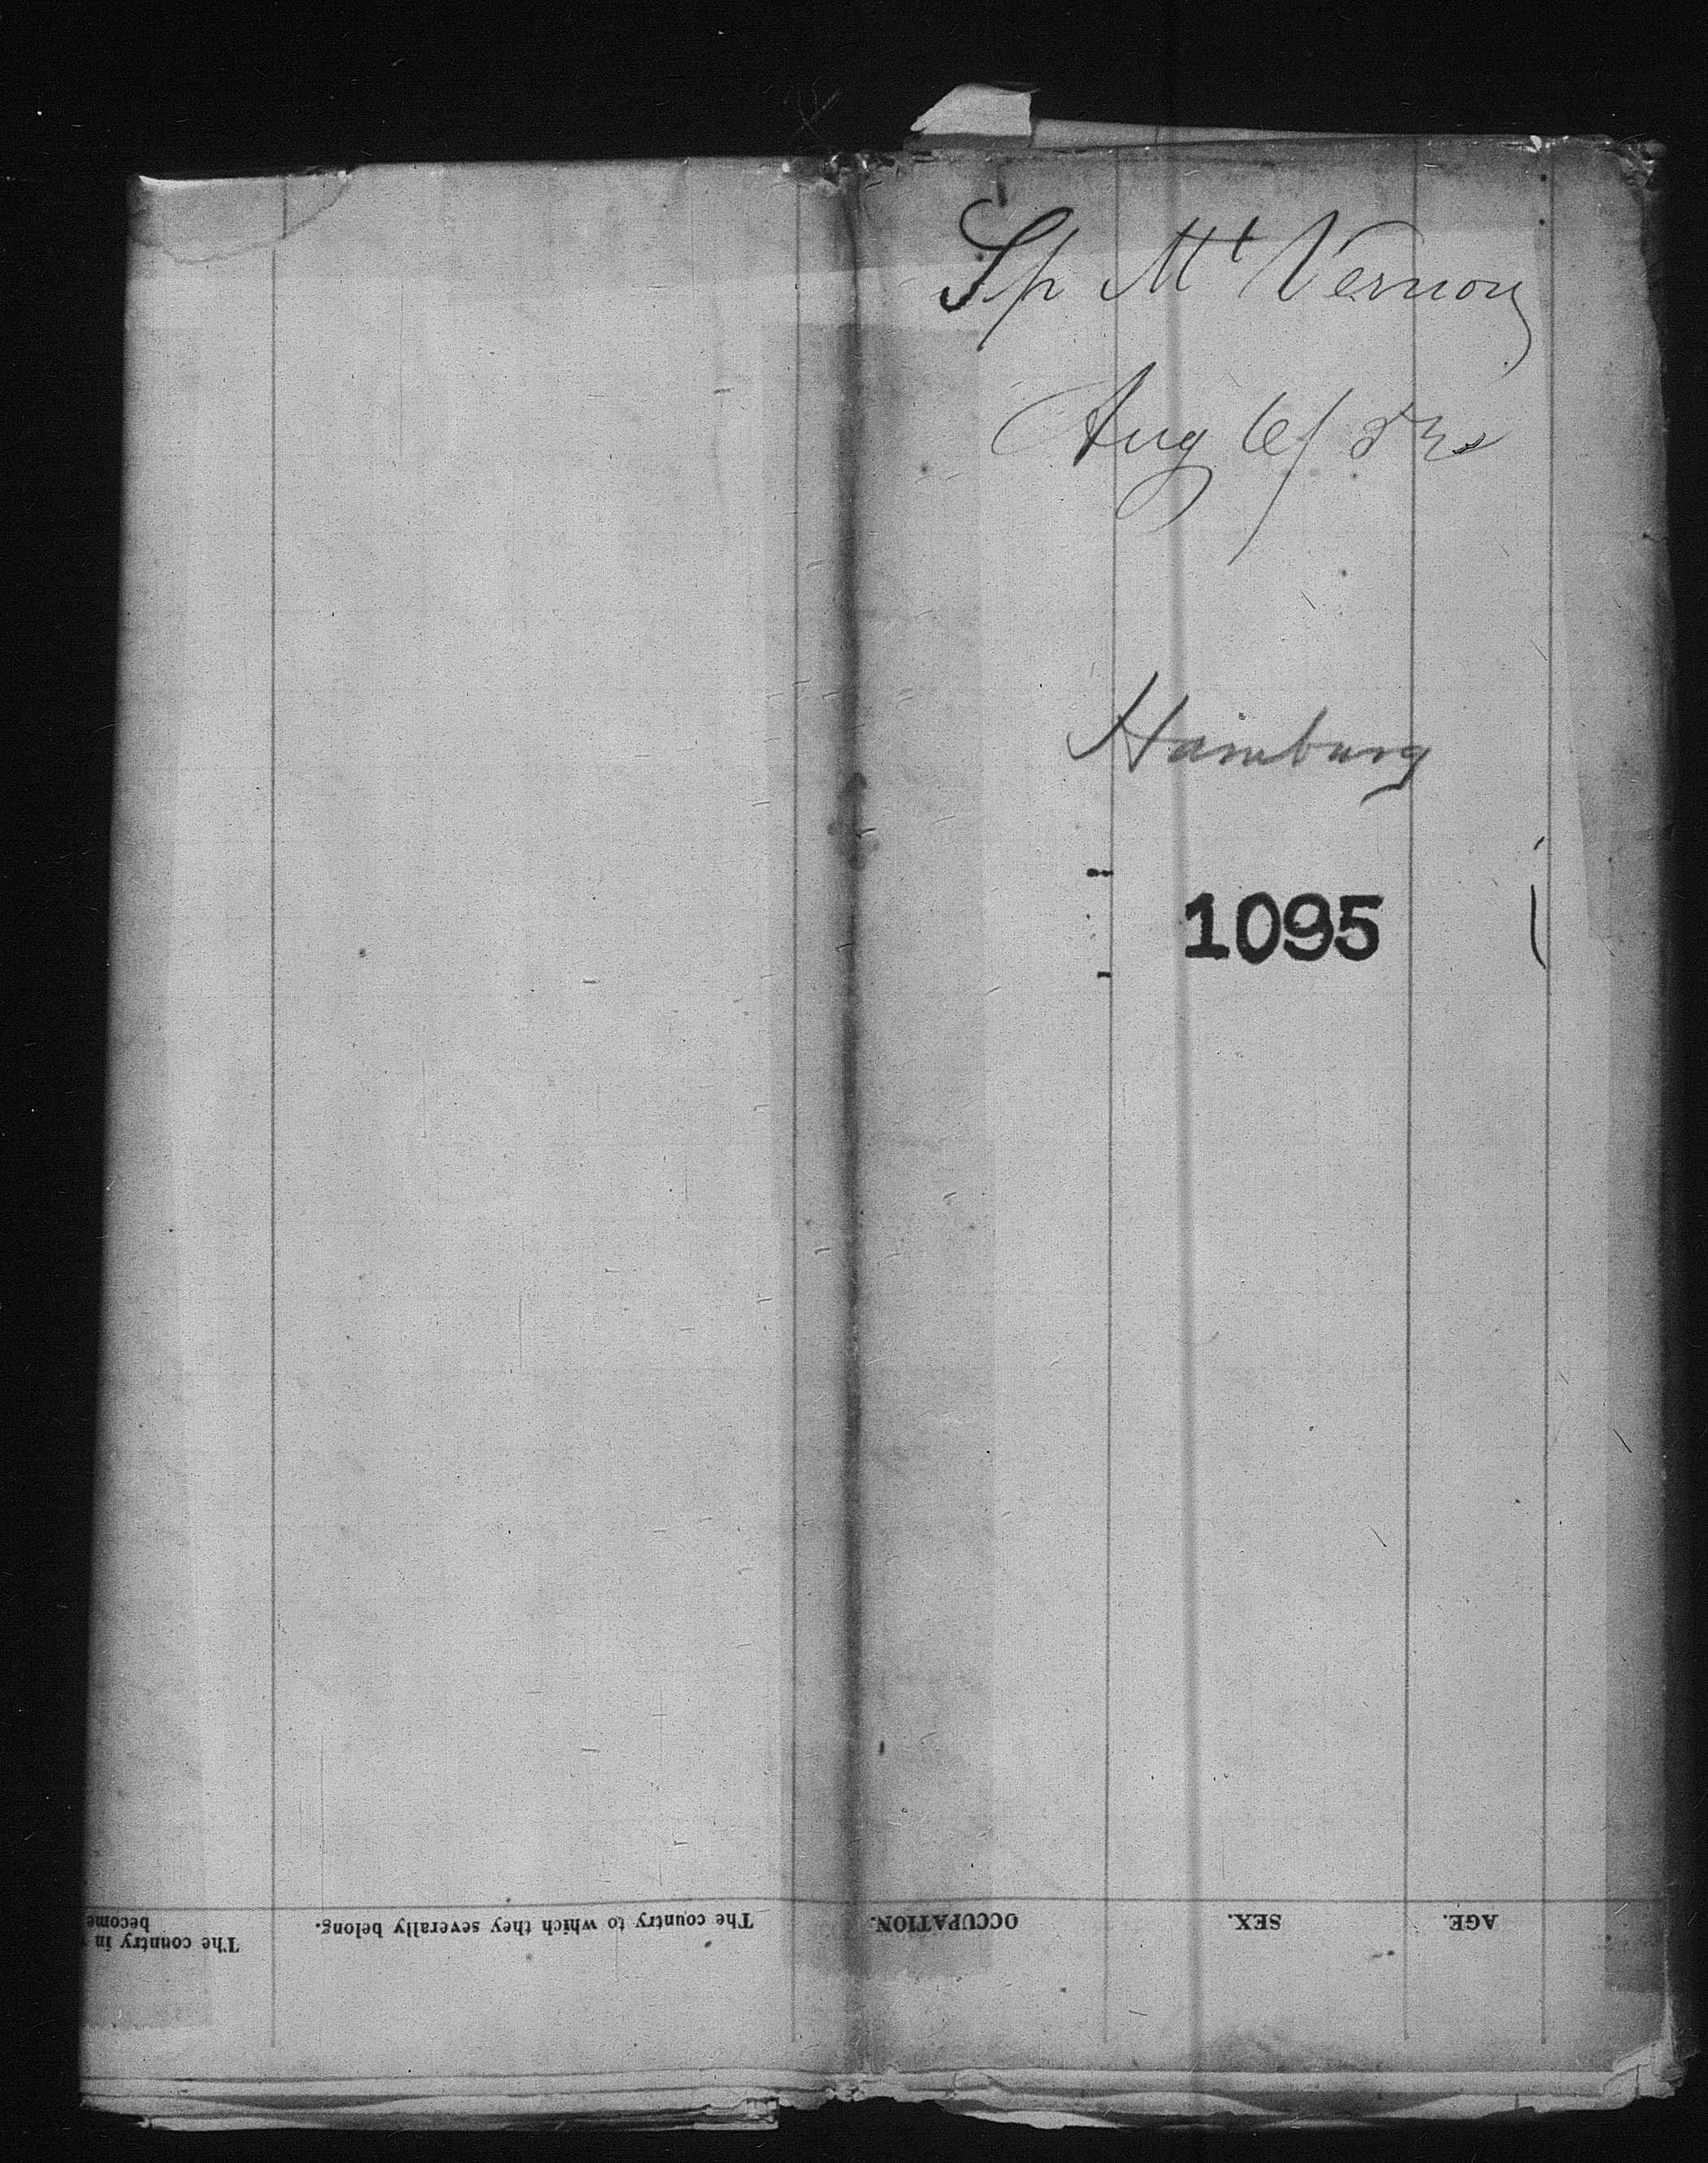 Sp Mt Vernon
Aug 6/53
Hamburg
1095
AGE.
SEX.
OCCUPATION.
The country to which they severally belong.
The country in
become